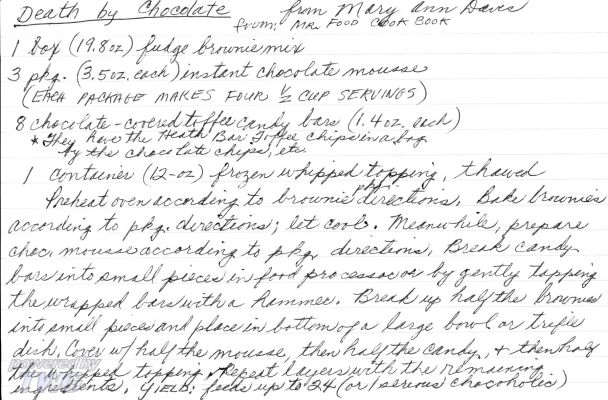 Death by Chocolate from Mary Ann Davis
from: MR. FOOD COOK BOOK
1 box (19.8oz) fudge brownie mix
3 pkg. (3.5oz. each) instant chocolate mousse
(EACH PACKAGE MAKES FOUR 1/2 CUP SERVINGS)
8 chocolate-covered toffee candy bars (1.4oz. each)
* They have the Heath Bar Toffee chips in a bag
by the chocolate chips, etc.
1 container (12-oz) frozen whipped topping, thawed
Preheat oven according to brownie pkg. directions. Bake brownies
according to pkg. directions; let cool. Meanwhile, prepare
choc. mousse according to pkg. directions. Break candy
bars into small pieces in food processor or by gently tapping
the wrapped bars with a hammer. Break up half the brownies
into small pieces and place in bottom of a large bowl or trifle
dish. Cover w/ half the mousse, then half the candy, + then half
the whipped topping. Repeat layers with the remaining
ingredients. YIELD: feeds up to 24 (or 1 serious chocoholic)
powered by